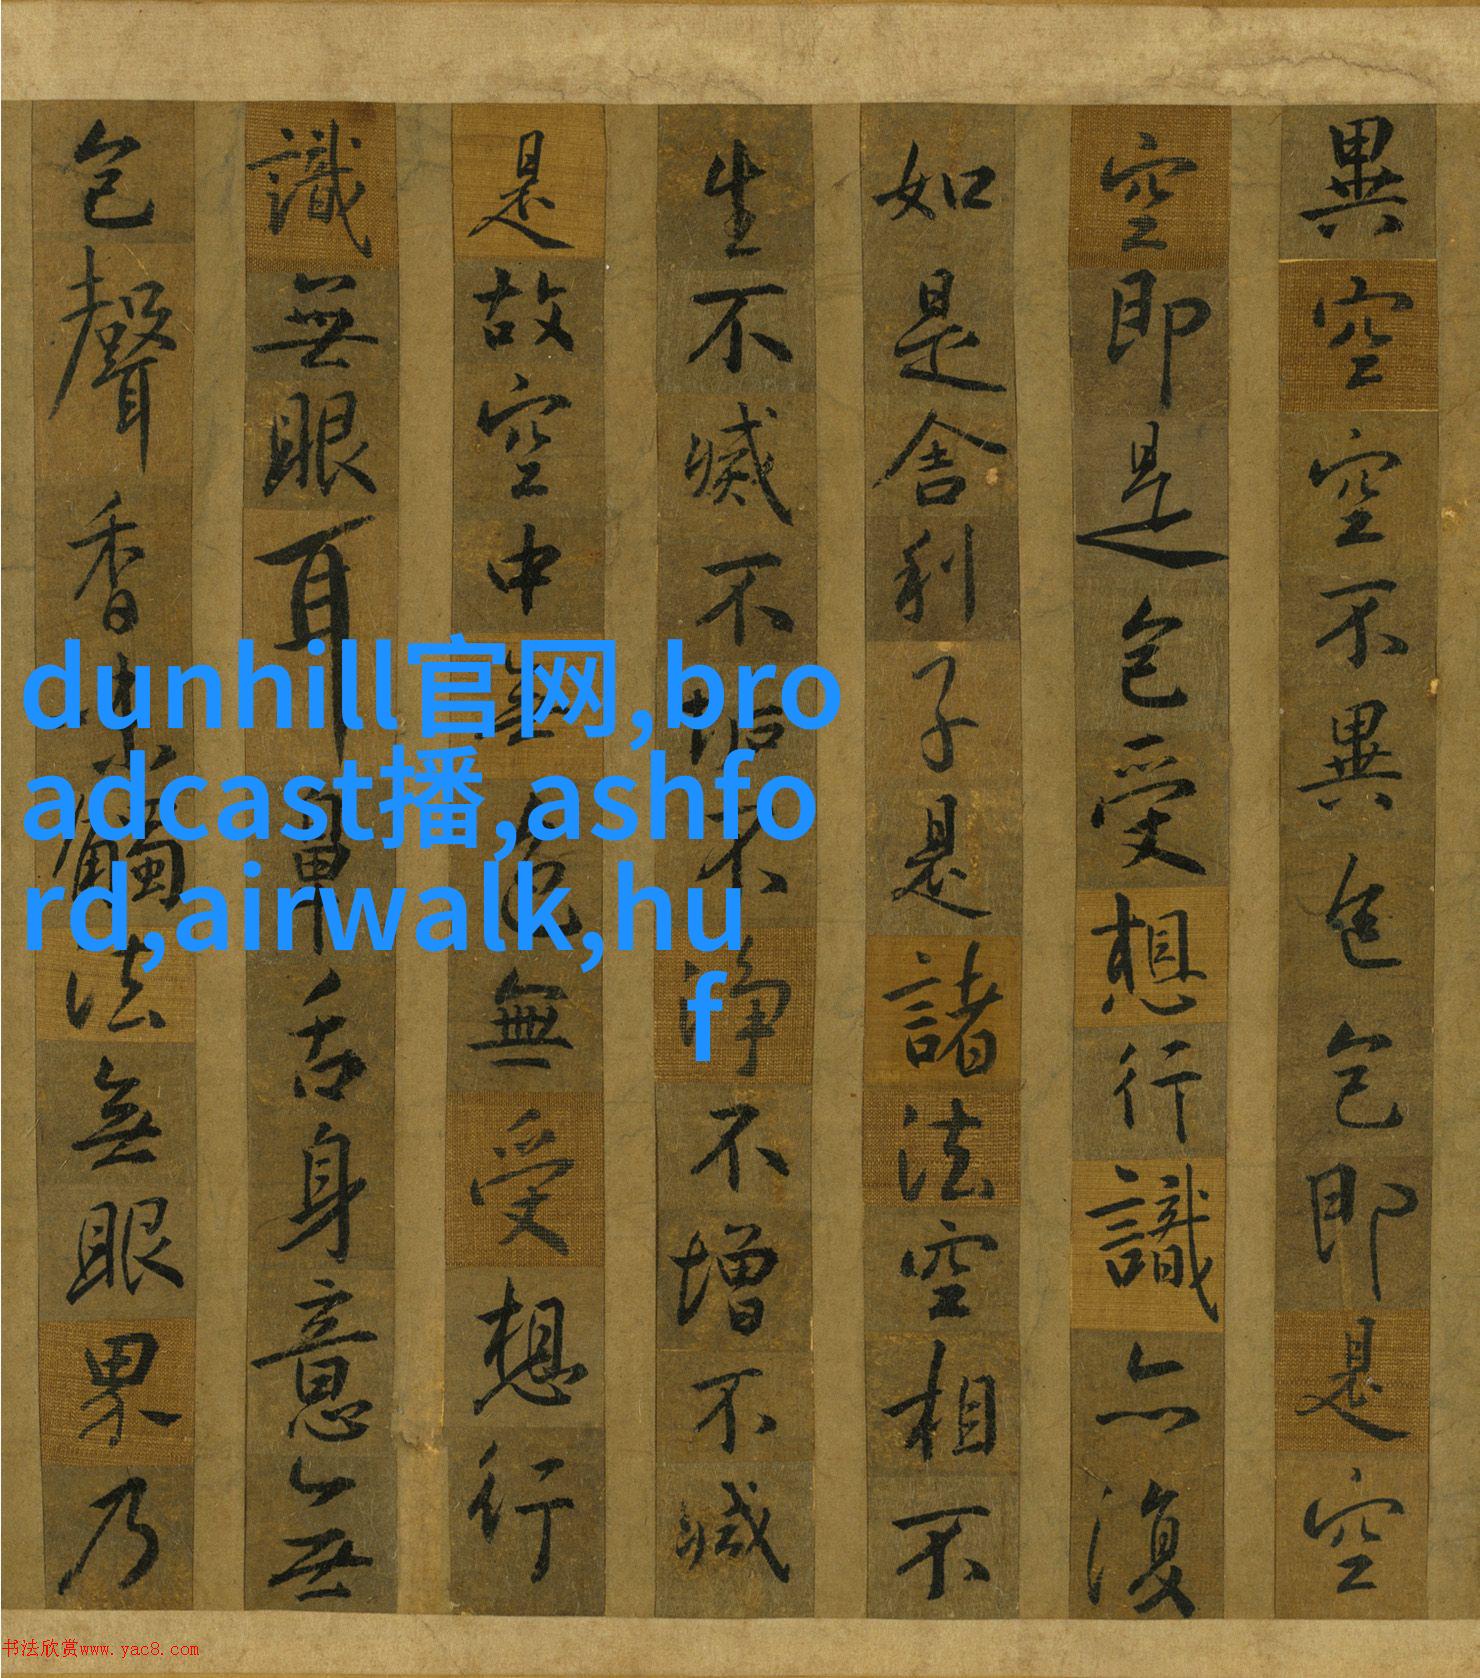 異空空不異色色即是空
空即是色受想行識亦復
如是舍利子是諸法空相不
生不滅不垢不淨不增不減
是故空中無色無受想行
識無眼耳鼻舌身意無
色聲香味觸法無眼界乃
dunhill官网,bro
adcast播,ashfo
rd,airwalk,hu
f
书法欣赏www.yac8.com